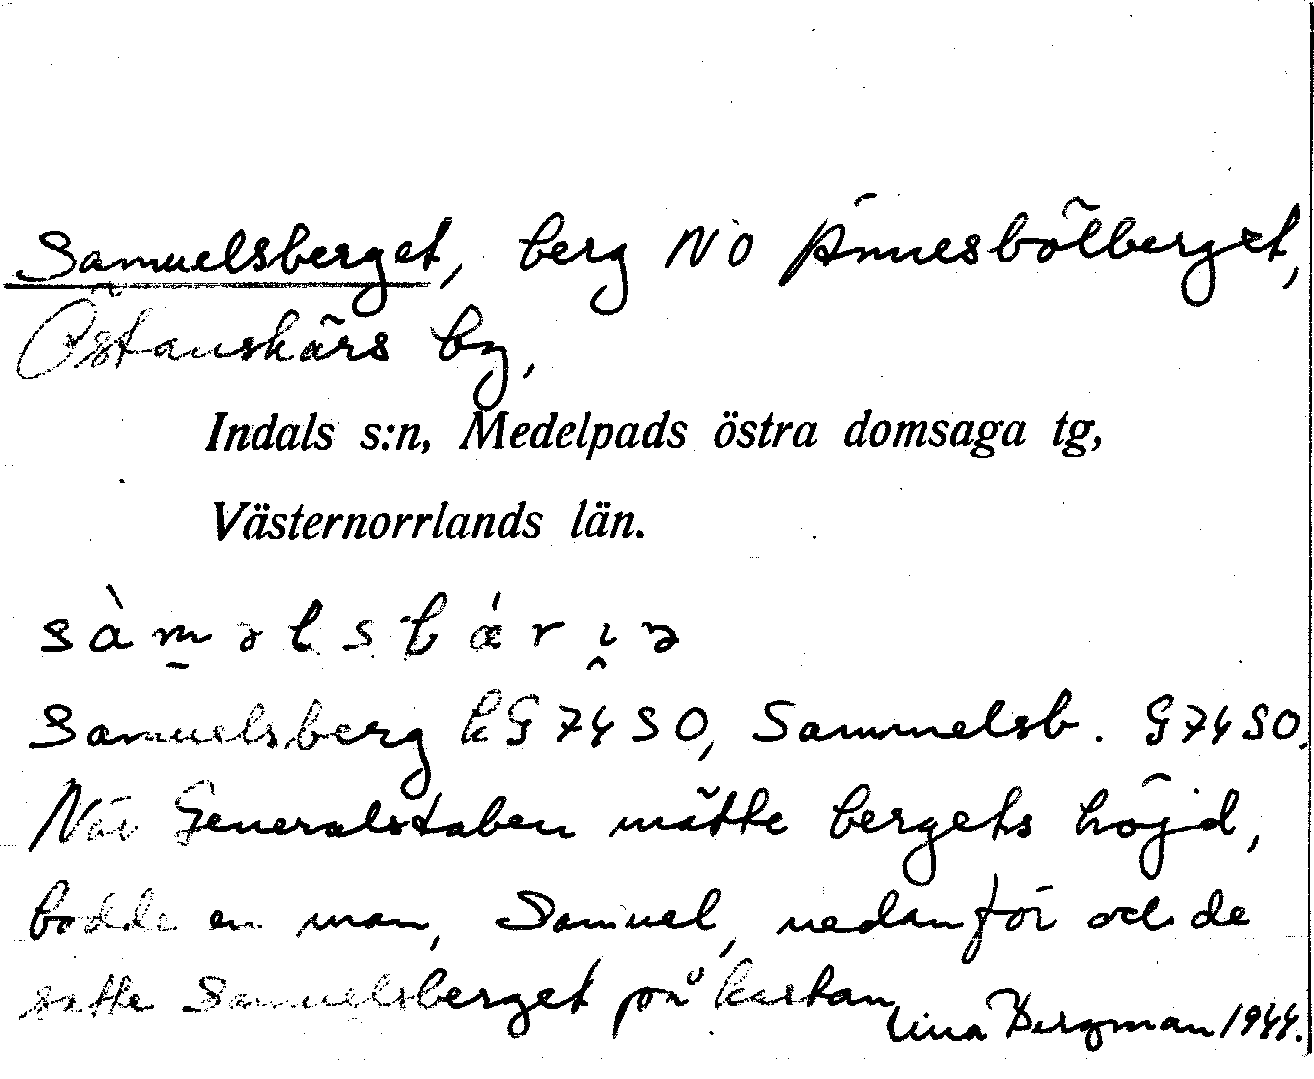 Samuelsberget, berg NO Ånnesbölberget,
Östanskärs by,
Indals s:n, Medelpads östra domsaga tg,
Västernorrlands län.
sàmǝlsbǽrıǝ
Samuelsberg kG 74 SO, Sammelsb. G 74 SO.
När Generalstaben mätte bergets höjd,
bodde en man, Samuel, nedanför och de
satte Samuelsberget på kartan
Lina Bergman 1944.